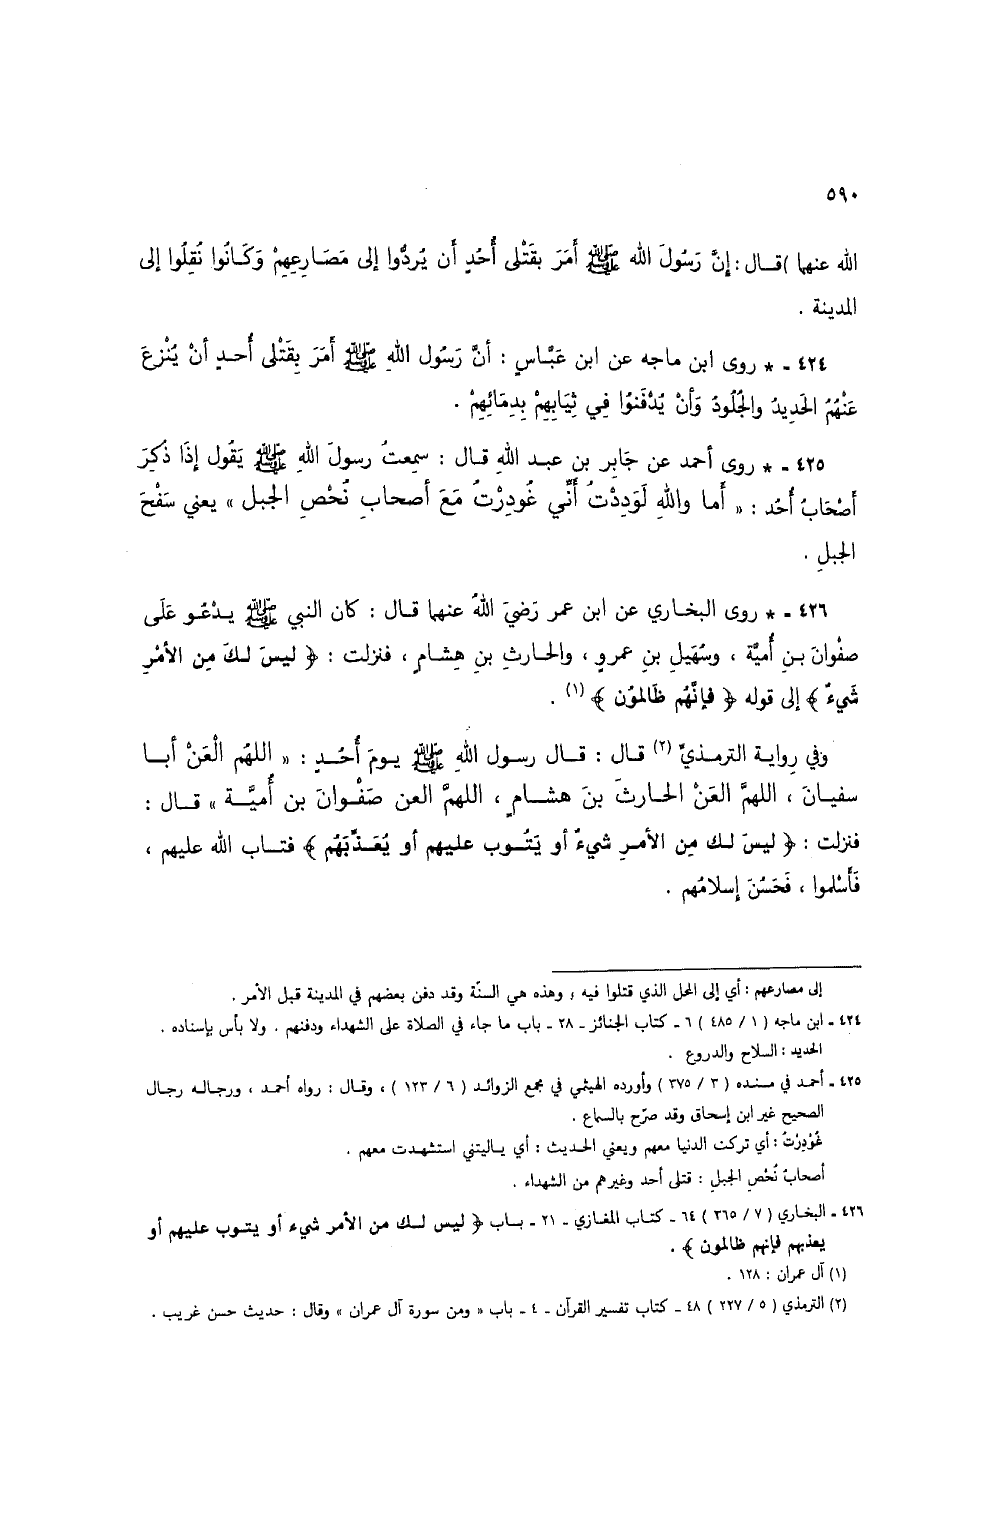 ٥٩٠
الله عنها ) قال : إِنَّ رَسُولَ الله ﷺ أَمَرَ بقَتْلى أُحُدٍ أَن يُردُّوا إلى مَصَارِعِهِمْ وَكَانُوا نُقِلُوا إلى
المدينة .
٤٢٤ ـ * روى ابن ماجه عن ابن عَبَّاسٍ : أنَّ رَسُول اللهِ ﷺ أَمَرَ بِقَتْلى أُحدٍ أنْ يُنْزعَ
عَنْهُمُ الحَدِيدُ والجُلُودُ وَأنْ يُدْفَنُوا فِي ثِيَابِهِمْ بِدِمَائِهِمْ .
٤٢٥ ـ * روى أحمد عن جَابِر بن عبد اللهِ قال : سمِعتُ رسولَ اللهِ ﷺ يَقُول إذَا ذُكِرَ
أصْحَابُ أُحُد : « أَما واللهِ لَوَدِدْتُ أَنِّي غُودِرْتُ مَعَ أصحابِ نُحْصِ الجبل » يعني سَفْحَ
الجبلِ .
٤٢٦ ـ * روى البخاري عن ابن عمر رَضيَ اللهُ عنهما قال : كان النبي ﷺ يدْعُو عَلَى
صفْوانَ بنِ أُميَّة ، وسُهَيلِ بنِ عمرو ، والحارثِ بنِ هِشامٍ ، فنزلت : ﴿ ليسَ لكَ مِن الأمْرِ
شَيءٌ ﴾ إلى قوله ﴿ فإنَّهُم ظَالموُن ﴾ (١) .
وفي رواية الترمذيِّ (٢) قال : قال رسول اللهِ ﷺ يومَ أُحُدٍ : « اللهُم الْعَنْ أبا
سفيانَ ، اللهمَّ العَنْ الحارثَ بنَ هشامٍ ، اللهمَّ العن صَفْوانَ بن أُميَّة » قال :
فنزلت : ﴿ ليسَ لك مِن الأمرِ شيءٌ أو يَتُوب عليهم أو يُعَذِّبَهُم ﴾ فتاب الله عليهم ،
فَأَسْلموا ، فَحَسُنَ إسلامُهم .
إلى مصارعهم : أي إلى المحل الذي قتلوا فيه ، وهذه هي السنّة وقد دفن بعضهم في المدينة قبل الأمر .
٤٢٤ ـ ابن ماجه ( ١ / ٤٨٥ ) ٦ ـ كتاب الجنائز ـ ٢٨ ـ باب ما جاء في الصلاة على الشهداء ودفنهم . ولا بأس بإسناده .
الحديد : السلاح والدروع .
٤٢٥ ـ أحمد في مسنده ( ٣ / ٣٧٥ ) وأورده الهيثمي في مجمع الزوائد ( ٦ / ١٢٣ ) ، وقال : رواه أحمد ، ورجاله رجال
الصحيح غير ابن إسحاق وقد صرّح بالسماع .
غُوْدِرْتُ : أي تركت الدنيا معهم ويعني الحديث : أي ياليتني استشهدت معهم .
أصحابُ نُحْصِ الجبلِ : قتلى أحد وغيرهم من الشهداء .
٤٢٦ ـ البخاري ( ٧ / ٣٦٥ ) ٦٤ ـ كتاب المغازي ـ ٢١ ـ باب ﴿ ليس لك من الأمر شيء أو يتوب عليهم أو
يعذبهم فإنهم ظالمون ﴾ .
(١) آل عمران : ١٢٨ .
(٢) الترمذي ( ٥ / ٢٢٧ ) ٤٨ ـ كتاب تفسير القرآن ـ ٤ ـ باب « ومن سورة آل عمران » وقال : حديث حسن غريب .